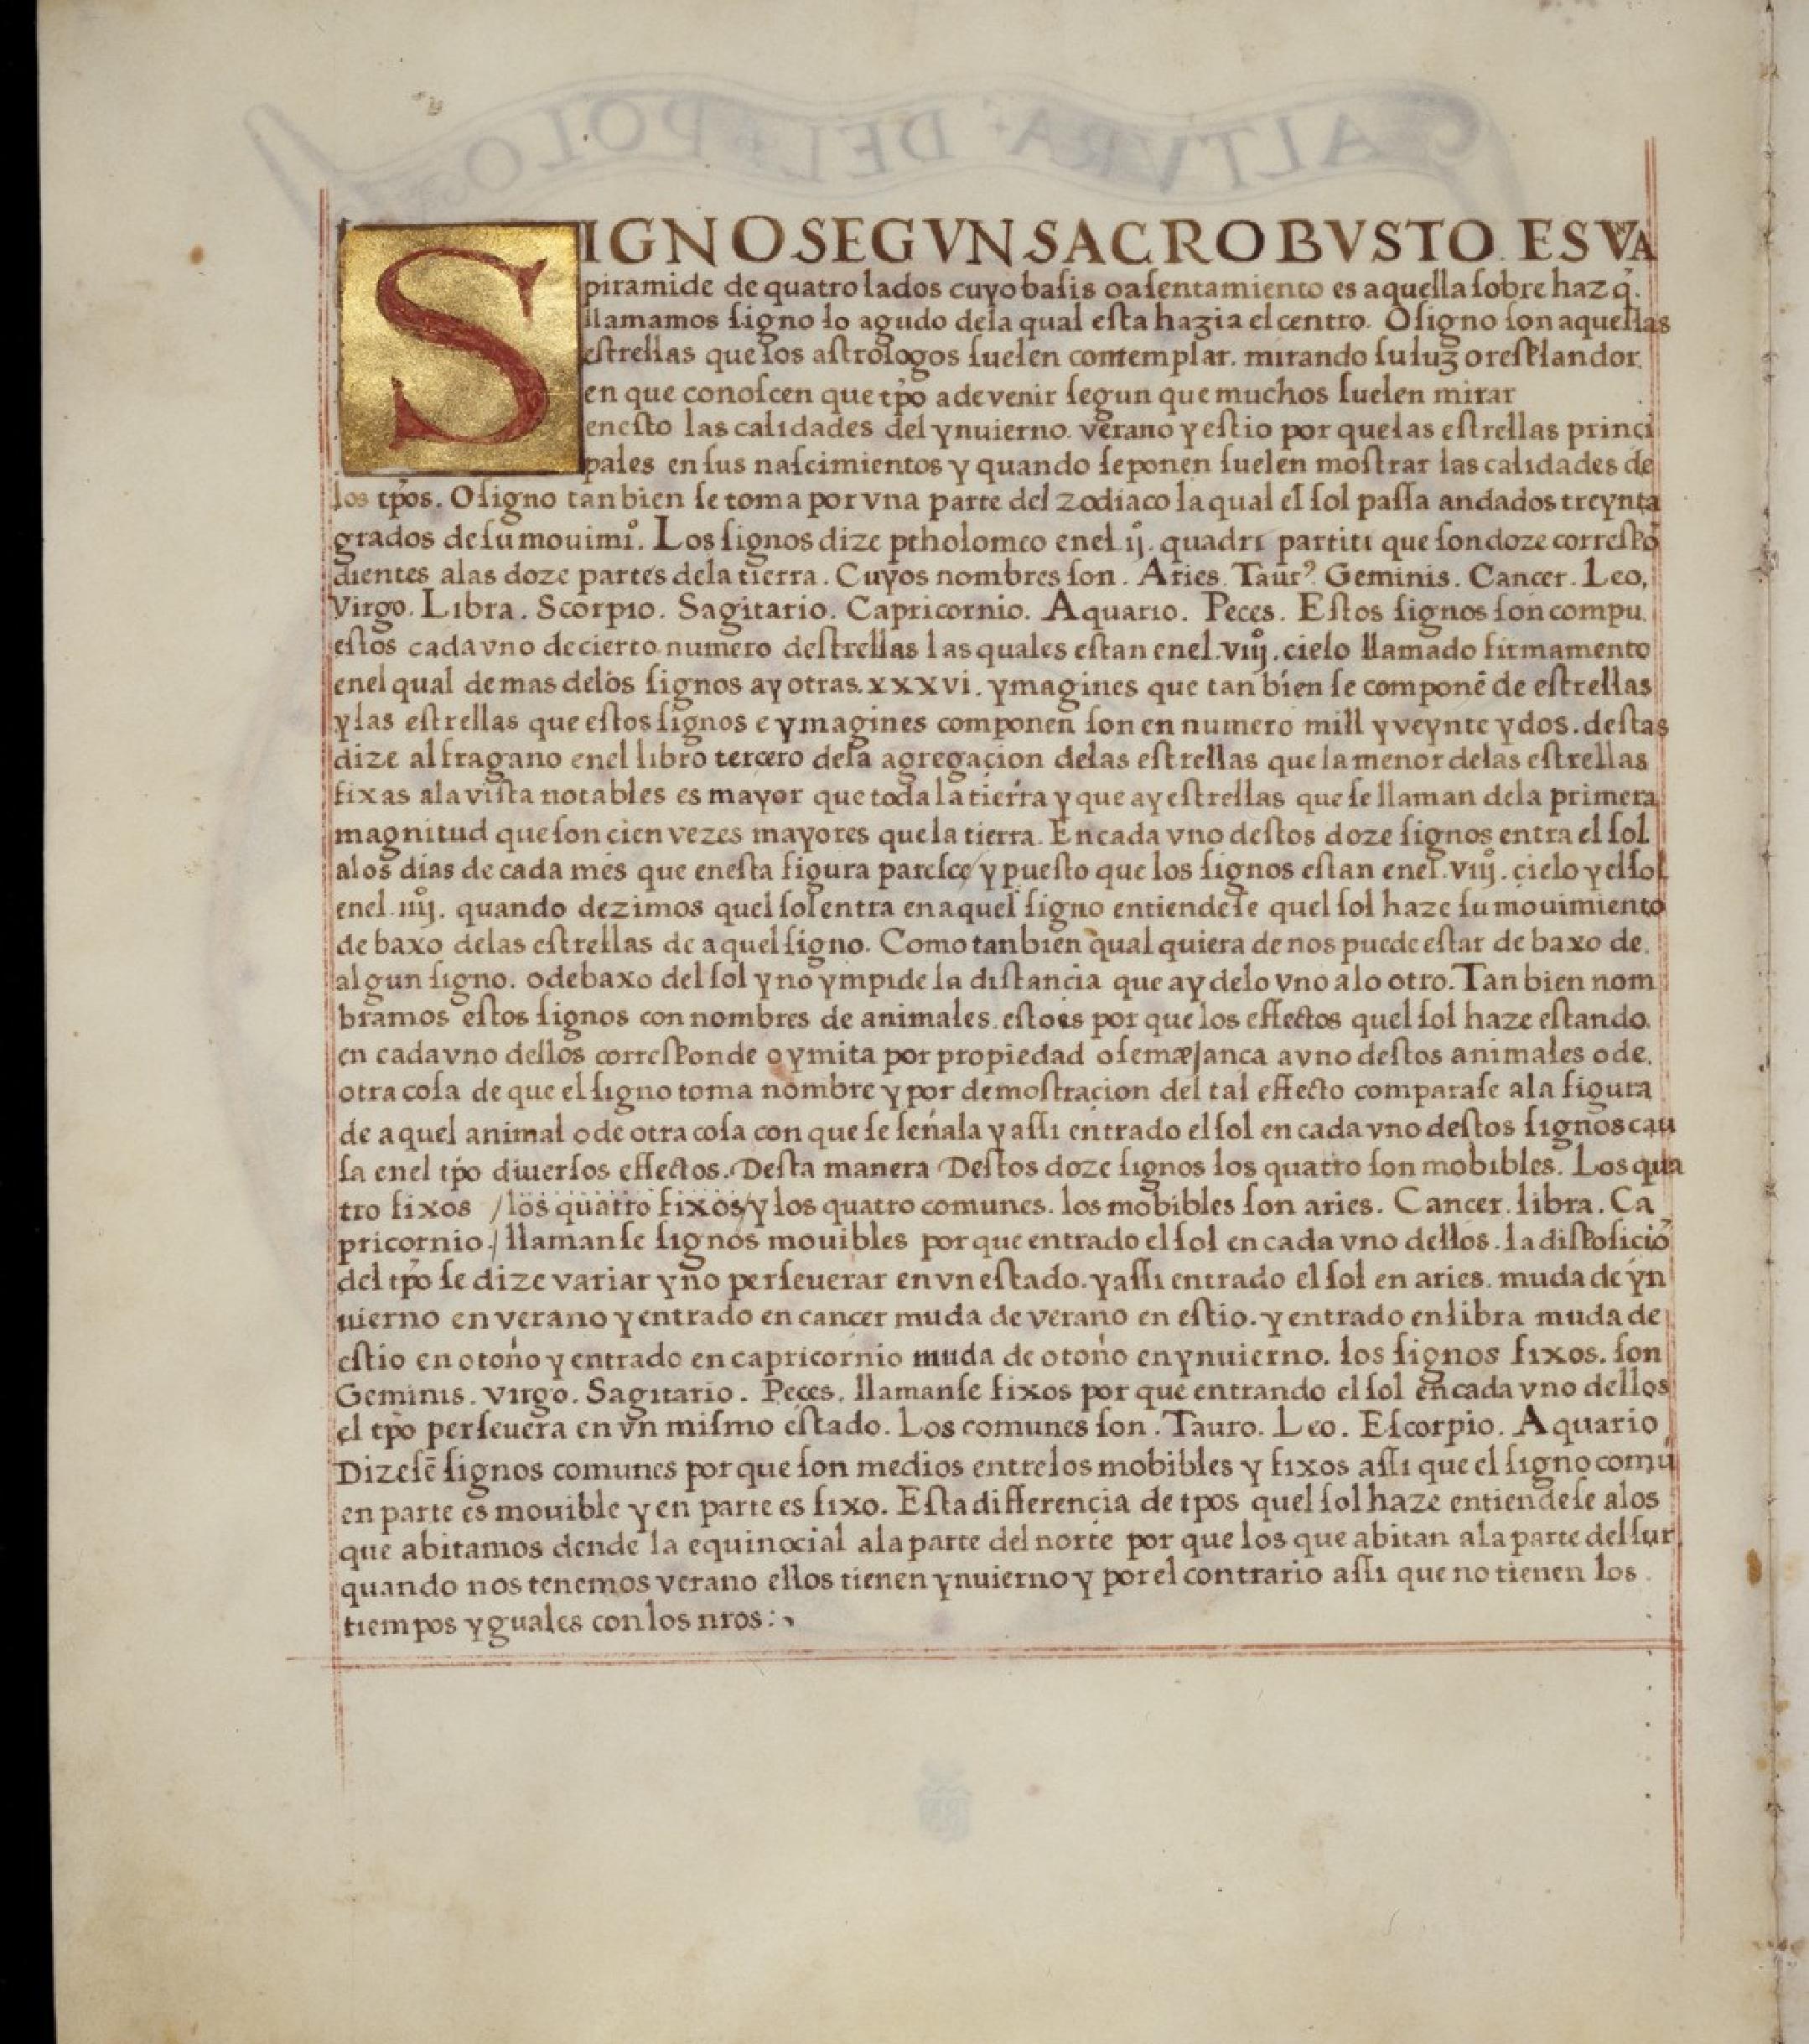 ALTVRA DEL POLO
SIGNO SEGVN SACROBVSTO ES VNA
piramide de quatro lados cuyo basis o asentamiento es aquella sobre haz q̃.
llamamos signo lo agudo dela qual esta hazia el centro. O signo son aquellas
estrellas que los astrologos suelen contemplar. mirando su luz o resplandor.
en que conoscen que tp̃o a de venir segun que muchos suelen mirar
enesto las calidades del ynuierno. verano y estio por que las estrellas princi
pales en sus nascimientos y quando se ponen suelen mostrar las calidades de
los tp̃os. O signo tanbien se toma por vna parte del zodiaco la qual el sol passa andados treynta
grados de su mouimiº. Los signos dize ptholomeo enel .ij. quadri partiti que son doze correspõ
dientes alas doze partes dela tierra. Cuyos nombres son. Aries. Taurꝰ. Geminis. Cancer. Leo.
Virgo. Libra. Scorpio. Sagitario. Capricornio. Aquario. Peces. Estos signos son compu.
estos cada vno de cierto numero destrellas las quales estan enel .viijº. cielo llamado firmamento
enel qual demas delos signos ay otras .xxxvi. ymagines que tan bien se componẽ de estrellas
y las estrellas que estos signos e ymagines componen son en numero mill y veynte y dos. destas
dize alfragano enel libro tercero dela agregaçion delas estrellas que la menor delas estrellas
fixas ala vista notables es mayor que toda la tierra y que ay estrellas que se llaman dela primera
magnitud que son cien vezes mayores que la tierra. En cada vno destos doze signos entra el sol
alos dias de cada mes que enesta figura paresce / y puesto que los signos estan enel .viijº. çielo y el sol
enel .iiijº. quando dezimos quel sol entra en aquel signo entiendese quel sol haze su mouimiento
de baxo delas estrellas de aquel signo. Como tanbien qual quiera de nos puede estar de baxo de.
algun signo. o debaxo del sol y no ympide la distançia que ay delo vno alo otro. Tan bien nom
bramos estos signos con nombres de animales. esto es por que los effectos quel sol haze estando.
en cada vno dellos corresponde o ymita por propiedad o semæjança a vno destos animales o de.
otra cosa de que el signo toma nombre y por demostraçion del tal effecto comparase ala figura
de aquel animal o de otra cosa con que se señala y assi entrado el sol en cada vno destos signos cau
sa enel tp̃o diuersos effectos. Desta manera Destos doze signos los quatro son mobibles. Los qua
tro fixos / los quatro fixos / y los quatro comunes. los mobibles son aries. Cancer. libra. Ca
pricornio. / llamanse signos mouibles por que entrado el sol en cada vno dellos. la disposiciõ
del tp̃o se dize variar y no perseuerar en vn estado. y assi entrado el sol en aries. muda de yn
uierno en verano y entrado en cançer muda de verano en estio. y entrado en libra muda de
estio en otoño y entrado en capricornio muda de otoño en ynuierno. los signos fixos. son
Geminis. virgo. Sagitario. Peçes. llamanse fixos por que entrando el sol en cada vno dellos
el tp̃o perseuera en vn mismo estado. Los comunes son. Tauro. Leo. Escorpio. Aquario
Dizesẽ signos comunes por que son medios entre los mobibles y fixos assi que el signo comũ
en parte es mouible y en parte es fixo. Esta differençia de tpos quel sol haze entiendese alos
que abitamos dende la equinoçial ala parte del norte por que los que abitan ala parte del sur
quando nos tenemos verano ellos tienen ynuierno y por el contrario assi que no tienen los.
tiempos yguales con los nros :